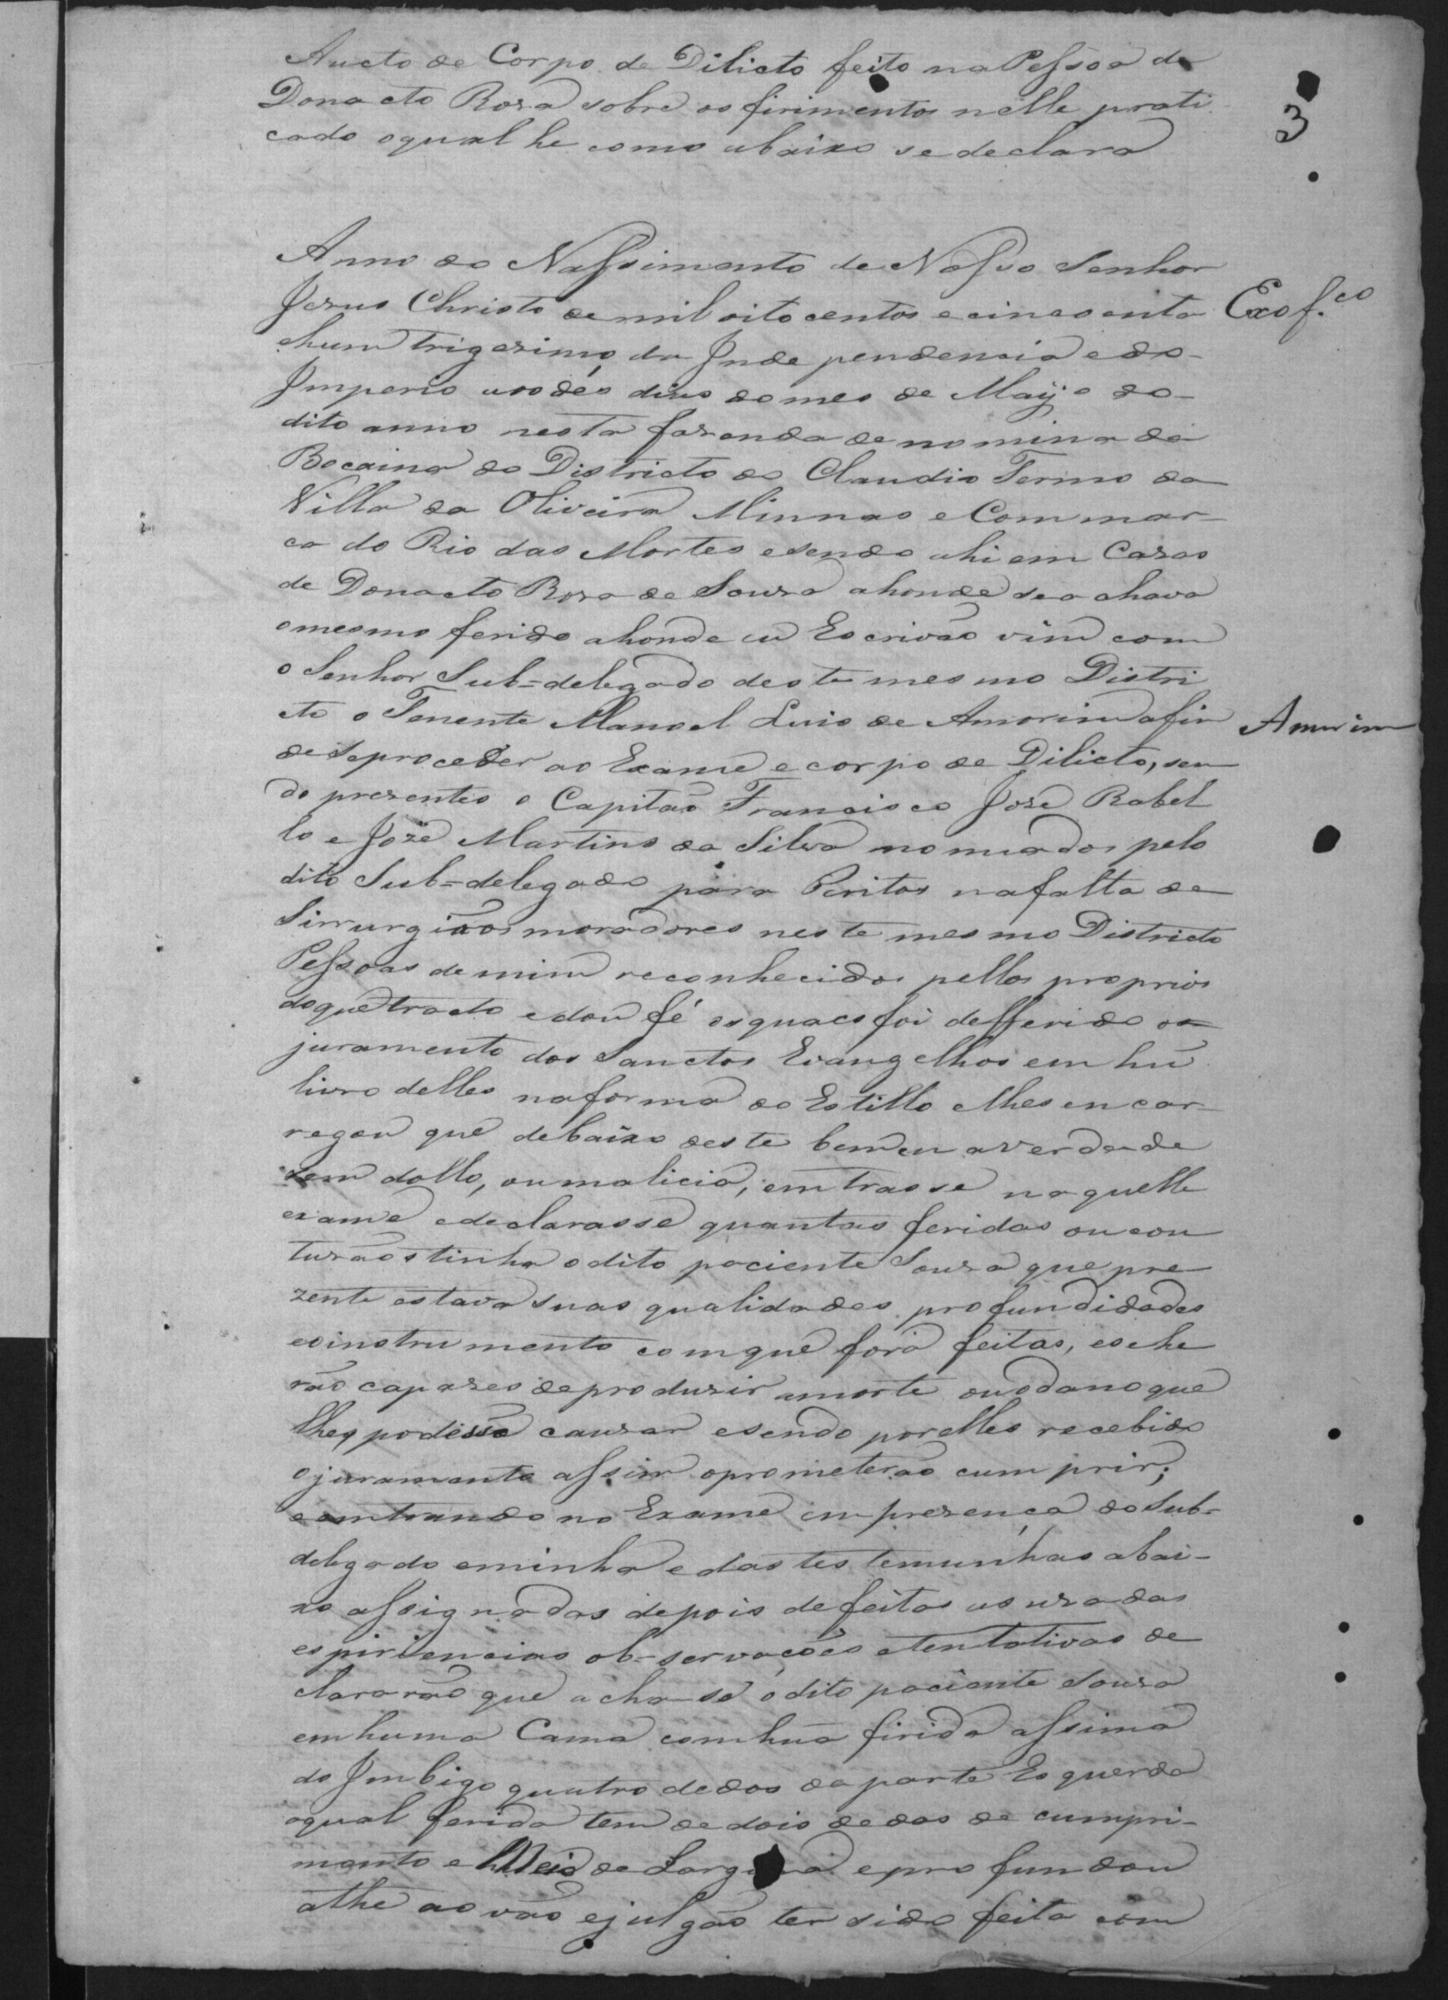 Aucto de Corpo de Dilicto feito na Pessoa de
Donacto Roza sobre os firimentos nelle prati
cado o qual he como abaixo se declara
3
Anno do Nassimento de Nosso Senhor
Jezus Christo de mil oito centos e cincoenta
Exof.co
e hum trigezimo da Inde pendencia e do
Imperio aos dés dias do mes de Mayo do
dito anno nesta fazenda denominada
Bocaina do Districto do Claudio Termo da
Villa da Oliveira Minnas e Commar
ca do Rio das Mortes e sendo ahi em Cazas
de Donacto Roza de Souza ahonde se achava
o mesmo ferido ahonde eu Escrivão vim com
o Senhor Sub=delegado deste mesmo Distri
cto o Tenente Manoel Luis de Amorim afim
Amorim
de se proceder ao Exame e corpo de Dilicto, sen
do prezentes o Capitão Francisco José Rabel
lo e José Martins da Silva nomeados pelo
dito Sub=delegado para Peritos na falta de
Sirrurgiãos moradores neste mesmo Districto
Pessoas de mim reconhecidos pellos proprios
do que tracto e dou fé os quaes foi defferido o
juramento dos Sanctos Evangelhos em hũ
livro delles na forma do Estillo e lhes encar
regou que debaixo deste bem e a verdade
sem dollo, ou malicia, entrasse naquelle
exame e declarasse quantas feridas ou con
tuzãos tinha o dito paciente Souza que pre
zente estava suas qualidades profundidades
e o instrumento com que fora feitas, e se he
rão capazes de produzir a morte ou o dano que
lhes podesse cauzar e sendo por elles recebido
o juramento assim o prometerão cumprir;
e entrando no Exame em prezença do Sub=
delegado e minha e das testemunhas abai-
xo assignadas depois de feitas as uzadas
espiriencias ob-servações e tentativas de
clararão que acha-se o dito paciente Souza
em huma Cama com hũa firida assima
do Imbigo quatro dedos da parte Esquerda
a qual ferida tem de dois dedos de cumpri-
mento e Meio de Largura e profundou
athe ao vão e julgão ter sido feita com